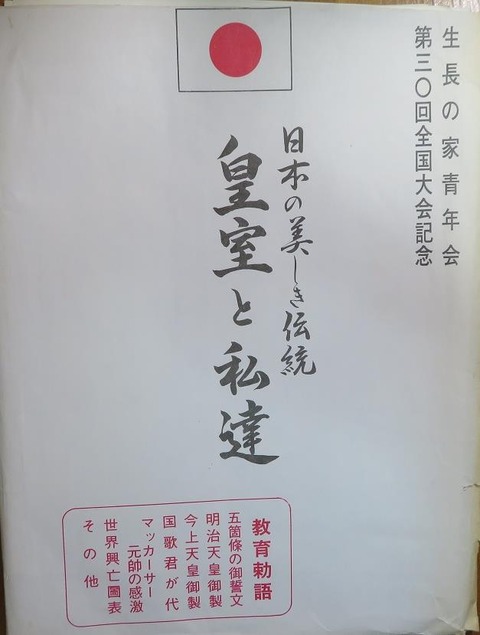 生長の家青年会
第三〇回全国大会記念
日本の美しき伝統
皇室と私達
教育勅語
五箇條の御誓文
明治天皇御製
今上天皇御製
国歌君が代
マッカーサー
元帥の感激
世界興亡圖表
その他